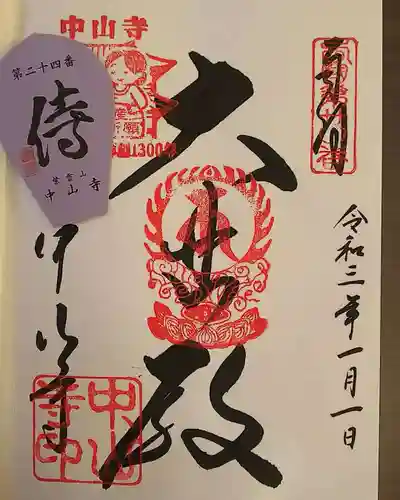 奉拝
令和三年一月一日
中山寺
大悲殿
中山寺
中山寺印
第二十四番
侍
紫雲山
中山寺